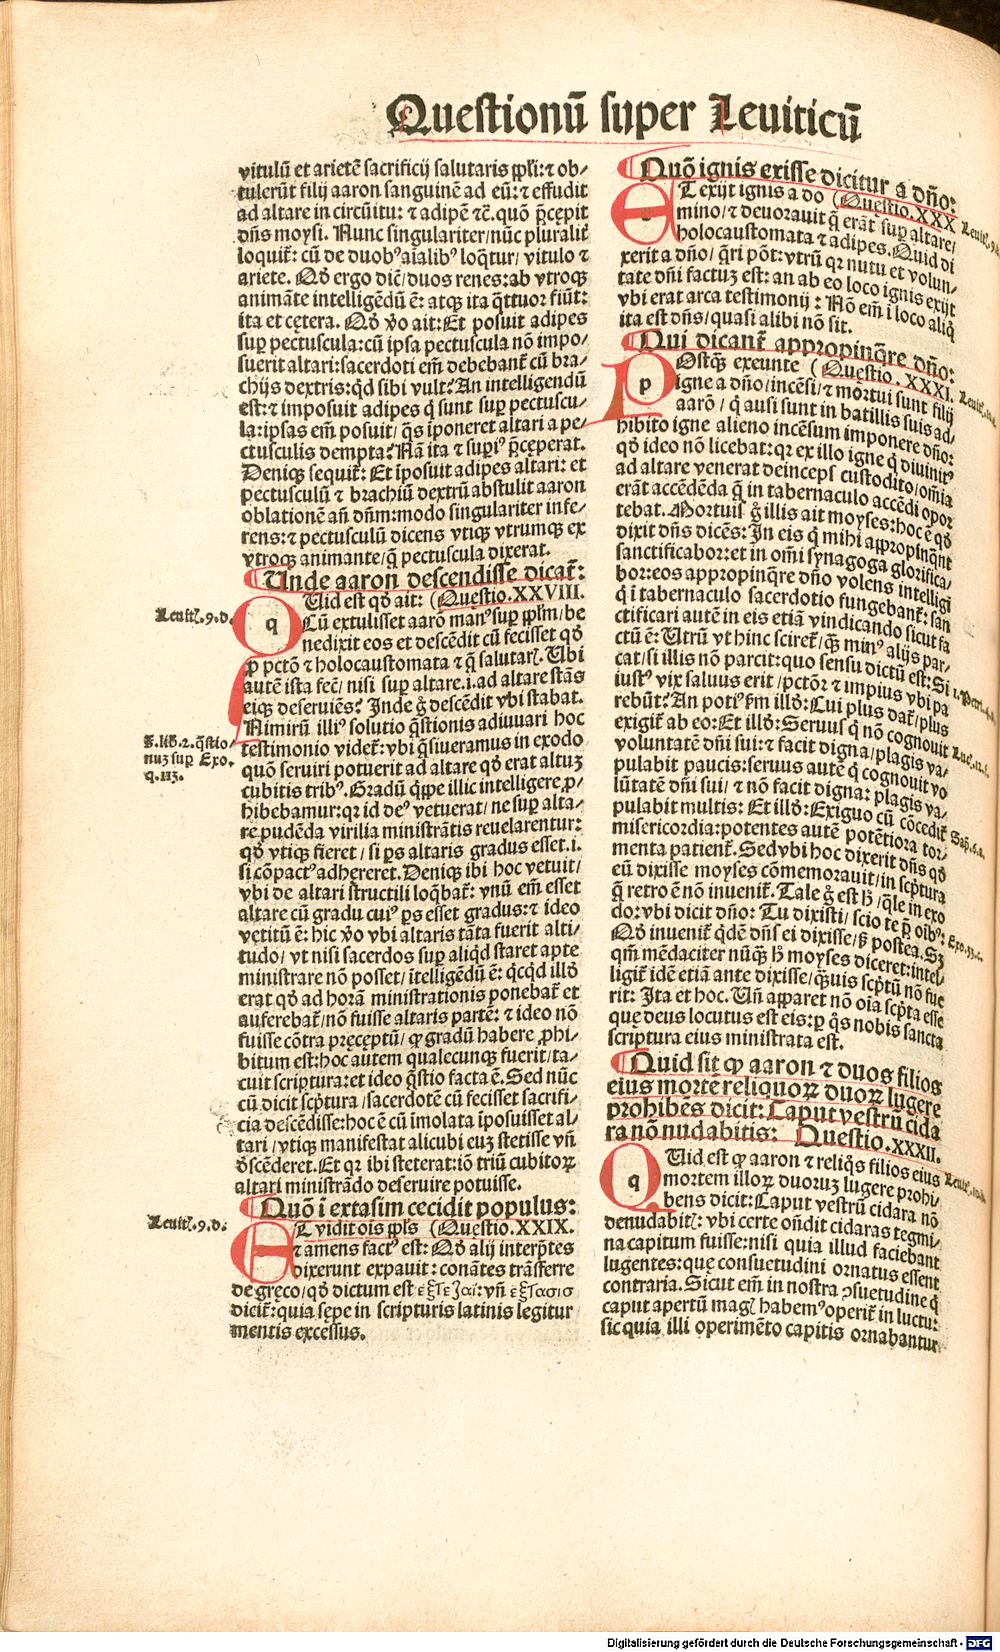 Questionū super Leuiticū
vitulū et arietē sacrificij salutaris ppli: ⁊ ob⸗
tulerūt filij aaron sanguinē ad eū: ⁊ effudit
ad altare in circūitu: ⁊ adipē ⁊c̄. quō p̄cepit
dn̄s moysi. Nunc singulariter/ nūc pluralit̄
loquit̄: cū de duobꝰ aīalibꝰ loq̄tur/ vitulo ⁊
ariete. Qd̄ ergo dic̄/ duos renes: ab vtroqꝫ
animāte intelligēdū ē: atqꝫ ita q̄ttuor fiūt:
ita et cętera. Qd̄ v̄o ait: Et posuit adipes
suꝑ pectuscula: cū ipsa pectuscula nō impo⸗
suerit altari: sacerdoti em̄ debebant̄ cū bra⸗
chijs dextris: qd̄ sibi vult? An intelligendū
est: ⁊ imposuit adipes q̄ sunt suꝑ pectuscu⸗
la: ipsas em̄ posuit/ q̄s īponeret altari a pe⸗
ctusculis dempta? Nā ita ⁊ suꝑiꝰ p̄ceperat.
Deniqꝫ sequit̄: Et īposuit adipes altari: et
pectusculū ⁊ brachiū dextrū abstulit aaron
oblationē an̄ dn̄m: modo singulariter infe⸗
rens: ⁊ pectusculū dicens vtiqꝫ vtrumqꝫ ex
vtroqꝫ animante/ q̄ pectuscula dixerat.
Unde aaron descendisse dicat̄:
Uid est qd̄ ait: (Questio. XXVIII.
Leuit. 9. d.
q Cū extulisset aarō manꝰ suꝑ pplm̄/ be
nedixit eos et descēdit cū fecisset qd̄
ꝓ pctō ⁊ holocaustomata ⁊ q̄ salutar. Ubi
autē ista fec̄/ nisi suꝑ altare. i. ad altare stās
eiqꝫ deseruiēs? Inde g̊ descēdit vbi stabat.
Nimirū illiꝰ solutio q̄stionis adiuuari hoc
S. lib. 2. q̄stio/
nuꝫ suꝑ Exo.
q. 113.
testimonio videt̄: vbi q̄siueramus in exodo
quō seruiri potuerit ad altare qd̄ erat altuꝫ
cubitis tribꝰ. Gradū q̄ppe illic intelligere ꝓ⸗
hibebamur: qr id deꝰ vetuerat/ ne suꝑ alta⸗
re pudēda virilia ministrātis reuelarentur:
qd̄ vtiqꝫ fieret/ si ꝑs altaris gradus esset. i.
si cōpactꝰ adhereret. Deniqꝫ ibi hoc vetuit/
vbi de altari structili loq̄bat̄: vnū em̄ esset
altare cū gradu cuiꝰ ꝑs esset gradus: ⁊ ideo
vetitū ē: hic v̄o vbi altaris tāta fuerit alti⸗
tudo/ vt nisi sacerdos suꝑ aliqd̄ staret apte
ministrare nō posset/ ītelligēdū ē: qcqd̄ illd̄
erat qd̄ ad horā ministrationis ponebat̄ et
auferebat̄/ nō fuisse altaris partē: ⁊ ideo nō
fuisse cōtra pręceptū/ qꝫ gradū habere ꝓhi⸗
bitum est: hoc autem qualecunqꝫ fuerit/ ta⸗
cuit scriptura: et ideo q̄stio facta ē. Sed nūc
cū dicit scp̄tura/ sacerdotē cū fecisset sacrifi⸗
cia descēdisse: hoc ē cū īmolata īposuisset al⸗
tari/ vtiqꝫ manifestat alicubi euꝫ stetisse vn̄
d̄scēderet. Et qr ibi steterat: iō triū cubitoꝝ
altari ministrādo deseruire potuisse.
Quō ī extasim cecidit populus:
Leuit. 9. d.
T vidit oīs ppls (Questio. XXIX.
⁊ amens factꝰ est: Qd̄ alij interp̄tes
dixerunt expauit: conātes trāsferre
de gręco/ qd̄ dictum est : vn̄
dicit̄: quia sępe in scripturis latinis legitur
mentis excessus.
Quō ignis exisse dicitur a dn̄o:
T exijt ignis a do (Questio. XXX
mino/ ⁊ deuorauit q̄ erāt suꝑ altare/
holocaustomata ⁊ adipes. Quid di
xerit a dn̄o/ q̄ri pōt: vtrū qr nutu et volun⸗
tate dn̄i factuꝫ est: an ab eo loco ignis exijt
vbi erat arca testimonij: Nō em̄ ī loco aliq̄
ita est dn̄s/ quasi alibi nō sit.
Qui dicant̄ appropinq̄re dn̄o:
Ostq̄ꝫ exeunte (Questio. XXXI.
p igne a dn̄o/ incēsi/ ⁊ mortui sunt filij
aarō/ q̄ ausi sunt in batillis suis ad/
hibito igne alieno incēsum imponere dn̄o:
qd̄ ideo nōn licebat: qr ex illo igne q̄ diuinitꝰ
ad altare venerat deinceps custodito/ om̄ia
erāt accēdēda q̄ in tabernaculo accēdi opor
tebat. Mortuis g̊ illis ait moyses: hoc ē qd̄
dixit dn̄s dicēs: In eis q̄ mihi appropinq̄nt
sanctificabor: et in om̄i synagoga glorifica/
bor: eos appropinq̄re dn̄o volens intelligi
q̄ ī tabernaculo sacerdotio fungebant̄: san
ctificari autē in eis etiā vindicando sicut fa
ctū ē: Utrū vt hinc sciret̄/ q̄ꝫ minꝰ alijs par⸗
cat/ si illis nō parcit: quo sensu dictū est: Si
iustꝰ vix saluus erit/ pctōr ⁊ impius vbi pa
rebūt? An potiꝰ ꝑm illd̄: Cui plus dat̄/ plus
exigit̄ ab eo: Et illd̄: Seruuꝫ q̄ nō cognouit
voluntatē dn̄i sui: ⁊ facit digna/ plagis va⸗
pulabit paucis: seruus autē q̄ cognouit vo
lūtatē dn̄i sui/ ⁊ nō facit digna: plagis va⸗
pulabit multis: Et illd̄: Exiguo cū cōcedit̄
misericordia: potentes autē potētiora tor⸗
menta patient̄. Sed vbi hoc dixerit dn̄s qd̄
eū dixisse moyses cōmemorauit/ in scp̄tura
q̄ retro ē nō inuenit̄. Tale g̊ est h̄/ q̄le in exo
do: vbi dicit dn̄o: Tu dixisti/ scio te p̄ oībꝰ:
Qd̄ inuenit̄ q̄dē dn̄s ei dixisse/ ꝫ postea. Sꝫ
qm̄ mēdaciter nūq̄ꝫ h̄ moyses diceret: intel⸗
ligit̄ idē etiā ante dixisse/ q̄ꝫuis scp̄tū nō fue
rit: Ita et hoc. Un̄ apparet nō oīa scp̄ta esse
quę deus locutus est eis: ꝑ q̄s nobis sancta
scriptura eius ministrata est.
Quid sit qꝫ aaron ⁊ duos filios
eius mortē reliquoꝝ duoꝝ lugere
prohibēs dicit: Caput vestrū cida
ra nō nudabitis: Questio. XXXII.
Uid est qꝫ aaron ⁊ reliq̄s filios eius
q mortem illoꝝ duoruꝫ lugere prohi⸗
bens dicit: Caput vestrū cidara nō
denudabit: vbi certe on̄dit cidaras tegmi⸗
na capitum fuisse: nisi quia illud faciebant
lugentes: quę consuetudini ornatus essent
contraria. Sicut em̄ in nostra ꝯsuetudine q̄
caput apertū mag habemꝰ operit̄ in luctu:
sic quia illi operimēto capitis ornabantur
Sap. 6. a.
Exo. 33. c.
Digitalisierung gefördert durch die Deutsche Forschungsgemeinschaft - DFG